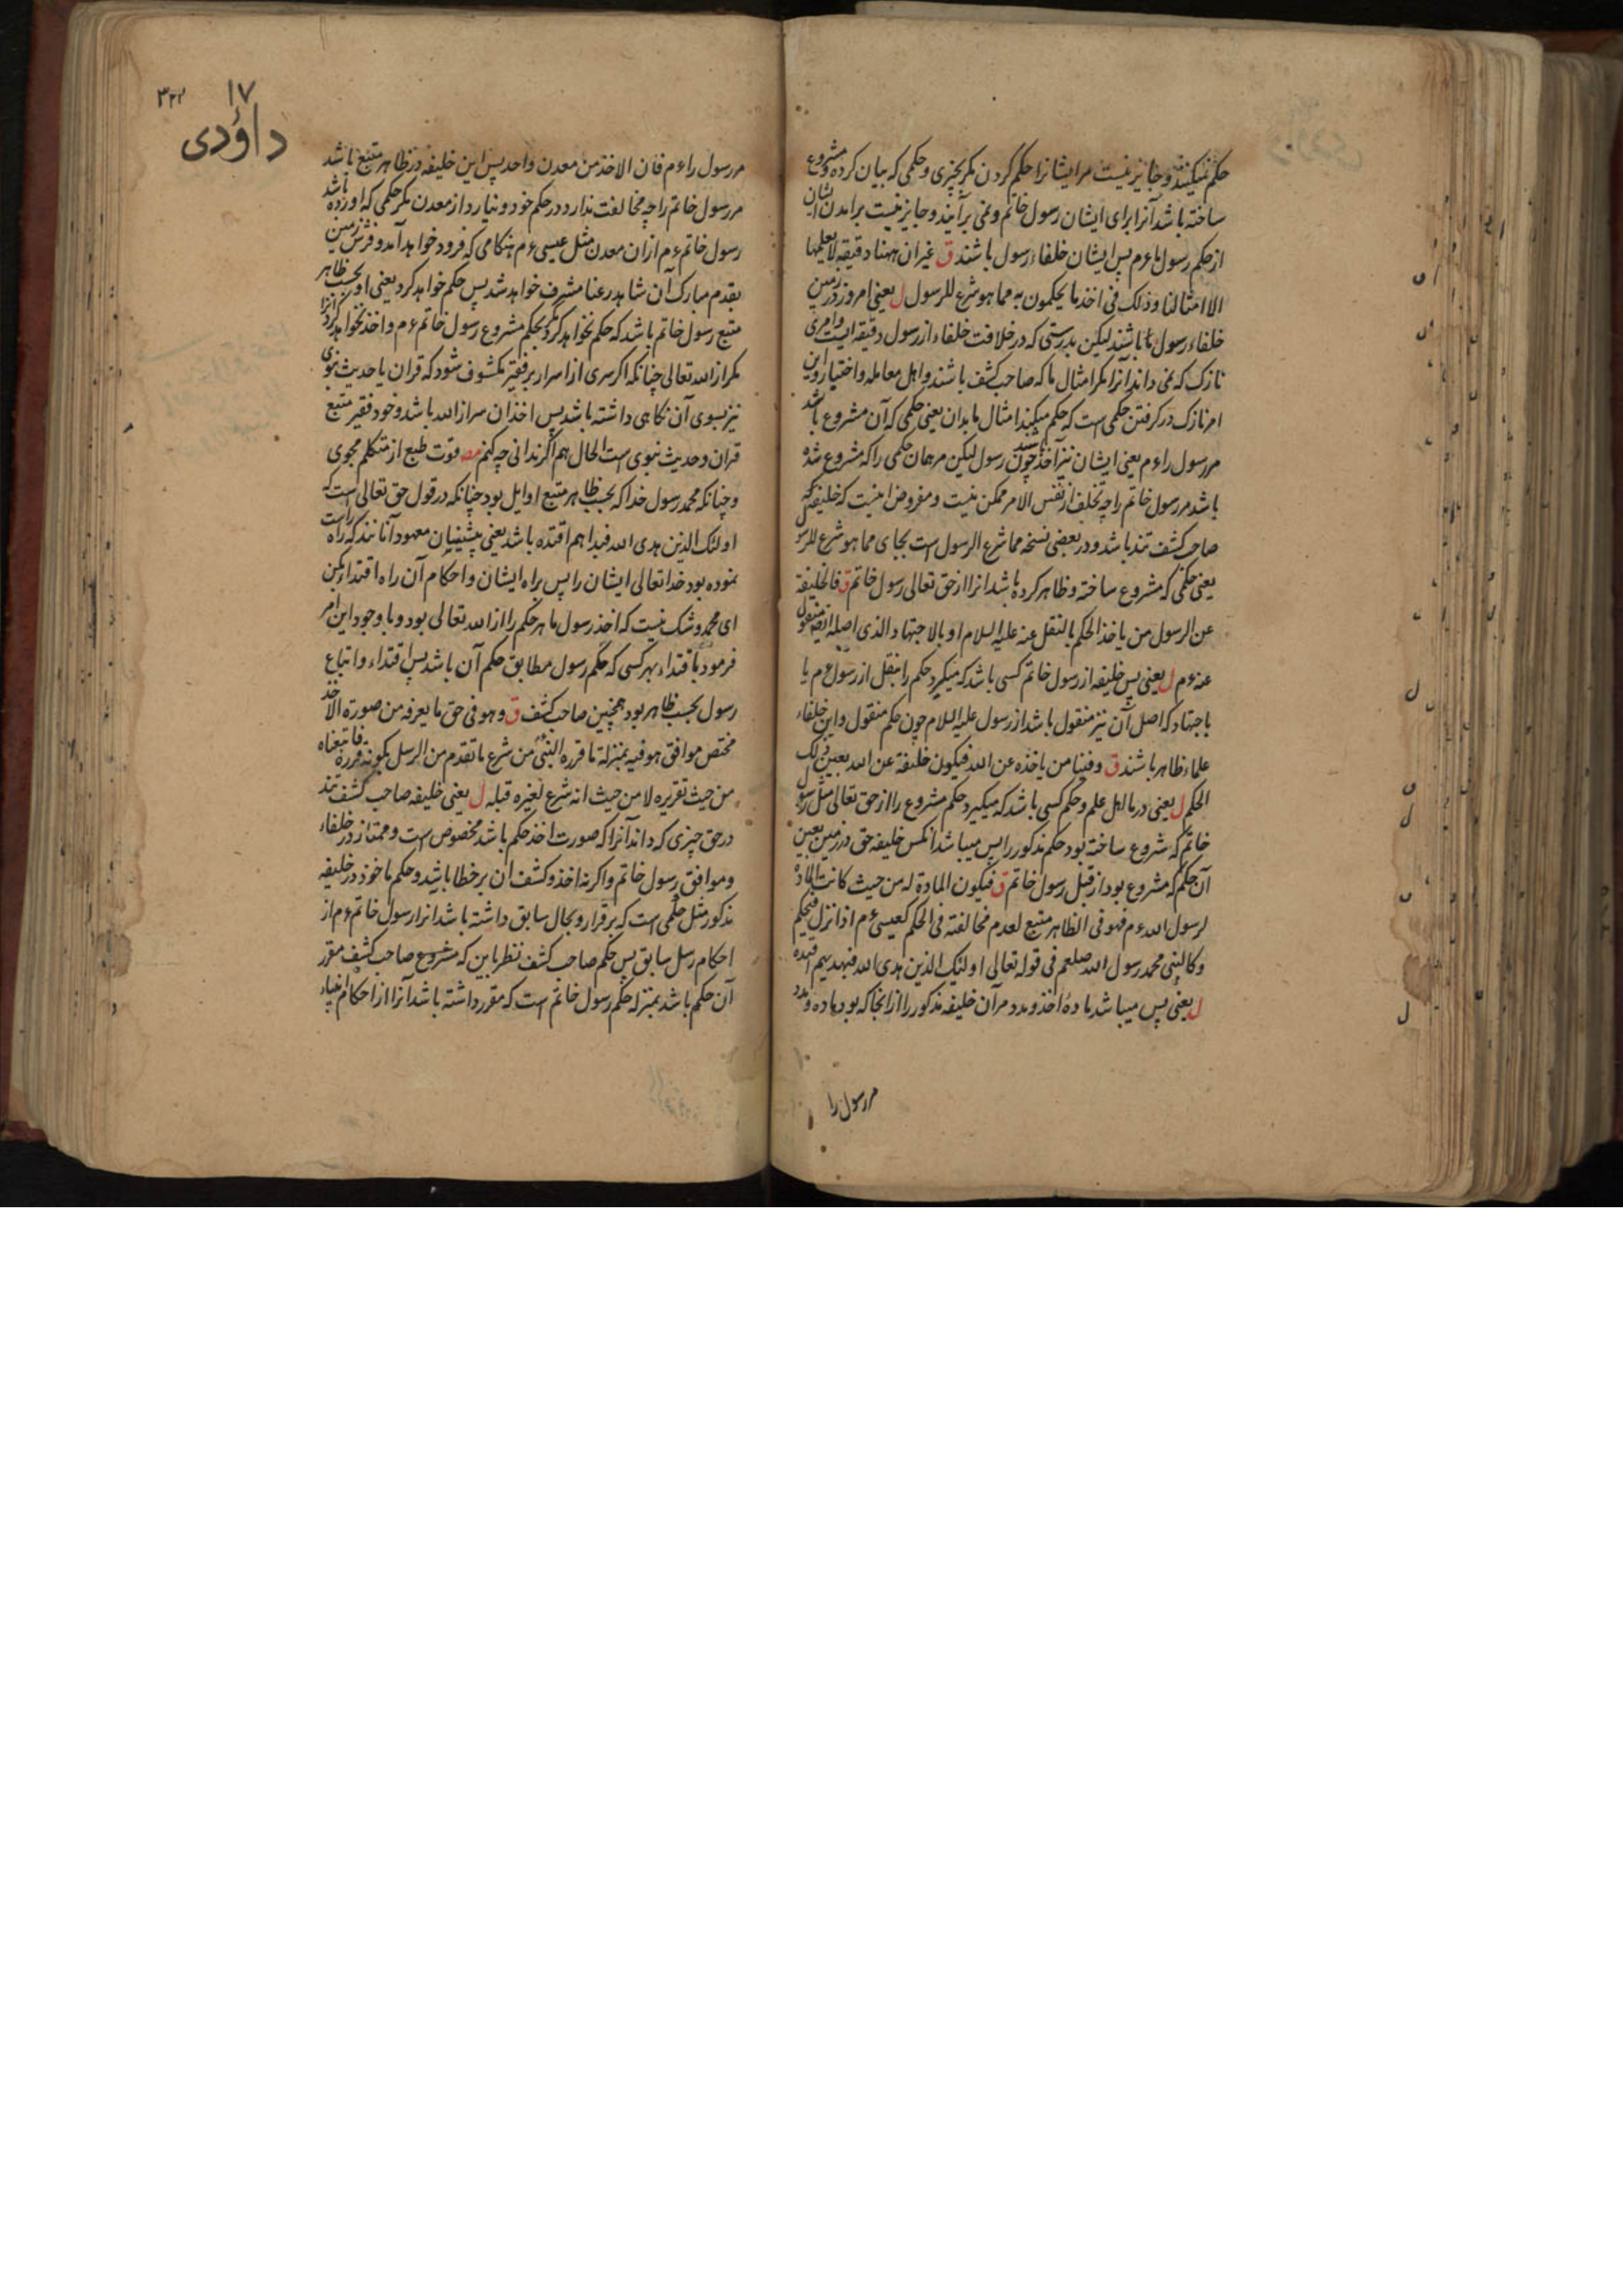 حکم نمیکنند و جایز نیست مر ایشانرا حکم کردن مکر بچیزی و حکمی که بیان کرده و مشروع
ساخته باشد آنرا برای ایشان رسول خاتم و نمی برآیند و جایز نیست برآمدن ایشان
از حکم رسول ما ءم پس ایشان خلفاء رسول باشند ق غیر ان ههنا دقیقة لا یعلمها
الا امثالنا و ذلک فی اخذ ما یحکمون به مما هو شرع للرسول ل یعنی امروز در زمین
خلفاء رسول ما باشند لیکن بدرستی که در خلافت خلفاء از رسول دقیقه ایست و امری
نازک که نمی داند آنرا مکر امثال ما که صاحب کشف باشند و اهل معامله و اختیار و این
امر نازک در کرفتن حکمی است که حکم میکنند امثال ما بدان یعنی حکمی که آن مشروع باشد
مر رسول را ءم یعنی ایشان نیز آخذ باشند چون رسول لیکن مر همان حکمی را که مشروع شده
باشد مر رسول خاتم را چه تخلف از نفس الامر ممکن نیست و مفروض اینست که خلیفه که
صاحب کشف تند باشد و در بعضی نسخه مما شرع الرسول است بجای مما هو شرع للرسول
یعنی حکمی که مشروع ساخته و ظاهر کرده باشد انرا از حق تعالی رسول خاتم ق فالخلیفة
عن الرسول من یاخذ الحکم بالنقل عنه علیه السلام او بالاجتهاد الذی اصله ایضا منقول
عنه ءم ل یعنی پس خلیفه از رسول خاتم کسی باشد که میکیرد حکم را بنقل از رسول ءم یا
باجتهاد که اصل آن نیز منقول باشد از رسول علیه السلام چون حکم منقول و این خلفاء
علماء ظاهر باشند ق و فینا من یاخذه عن الله فیکون خلیفة عن الله بعین ذلک
الحکم ل یعنی در ما اهل علم و حکم کسی باشد که میکیرد حکم مشروع را از حق تعالی مثل رسول
خاتم که مشروع ساخته بود حکم مذکور را پس میباشد آنکس خلیفه حق در زمین بعین
آن حکم که مشروع بود از قبل رسول خاتم ق فیکون المادة له من حیث کانت المادة
لرسول الله ءم فهو فی الظاهر متبع لعدم مخالفته فی الحکم کعیسی ءم اذا نزل فیحکم
و کالنبی محمد رسول الله صلعم فی قوله تعالی اولئک الذین هدی الله فبهدیهم اقتده
ل یعنی پس میباشد مادۀ اخذ و مدد مر آن خلیفه مذکور را از انجا که بود ماده و مدد
مر رسول را
۱۷
داؤدی
مر رسول را ءم فان الاخذ من معدن واحد پس این خلیفه در ظاهر متبع باشد
مر رسول خاتم را چه مخالفت ندارد در حکم خود و نیارد از معدن مکر حکمی که اورده باشد
رسول خاتم ءم از ان معدن مثل عیسی ءم هنکامی که فرود خواهد آمد و فرش زمین
بقدم مبارک آن شاهد رعنا مشرف خواهد شد پس حکم خواهد کرد یعنی او بحسب ظاهر
متبع رسول خاتم باشد که حکم نخواهد کرد مکر بحکم مشروع رسول خاتم ءم و اخذ نخواهد کرد آنرا
مکر از الله تعالی چنانکه اکر سری از اسرار بر فقیر مکشوف شود که قران یا حدیث نبوی
نیز بسوی آن نکاهی داشته باشد پس اخذ ان سر از الله باشد و خود فقیر متبع
قران و حدیث نبوی است الحال هم اکر ندانی چه کنم مصـ قوت طبع از متکلم مجوی
و چنانکه محمد رسول خدا که بحسب ظاهر متبع اوایل بود چنانکه در قول حق تعالی است که
اولئک الذین هدی الله فبهداهم اقتده باشد یعنی پیشینیان معهود آنانند که راه راست
نموده بود خدا تعالی ایشان را پس براه ایشان و احکام آن راه اقتداء بکن
ای محمد و شک نیست که اخذ رسول ما هر حکم را از الله تعالی بود و با وجود این امر
فرمود باقتداء بهر کسی که حکم رسول مطابق حکم آن باشد پس اقتداء و اتباع
رسول بحسب ظاهر بود همچنین صاحب کشف ق و هو فی حق ما یعرفه من صورة الاخذ
مختص موافق هو فیه بمنزلة ما قرره النبی من شرع ما تقدم من الرسل بکونه قرره فاتبعناه
من حیث تقریره لا من حیث انه شرع لغیره قبله ل یعنی خلیفه صاحب کشف تند
در حق چیزی که داند آنرا که صورت اخذ حکم باشد مخصوص است و ممتاز در خلفاء
و موافق رسول خاتم و اکر نه اخذ و کشف ان بر خطا باشد و حکم ماخوذ در خلیفه
مذکور مثل حکمی است که برقرار و بحال سابق داشته باشد انرا رسول خاتم ءم از
احکام رسل سابق پس حکم صاحب کشف نظر باین که مشروع صاحب کشف مقرر
آن حکم باشد بمنزله حکم رسول خاتم است که مقرر داشته باشد آنرا از احکام انبیاء